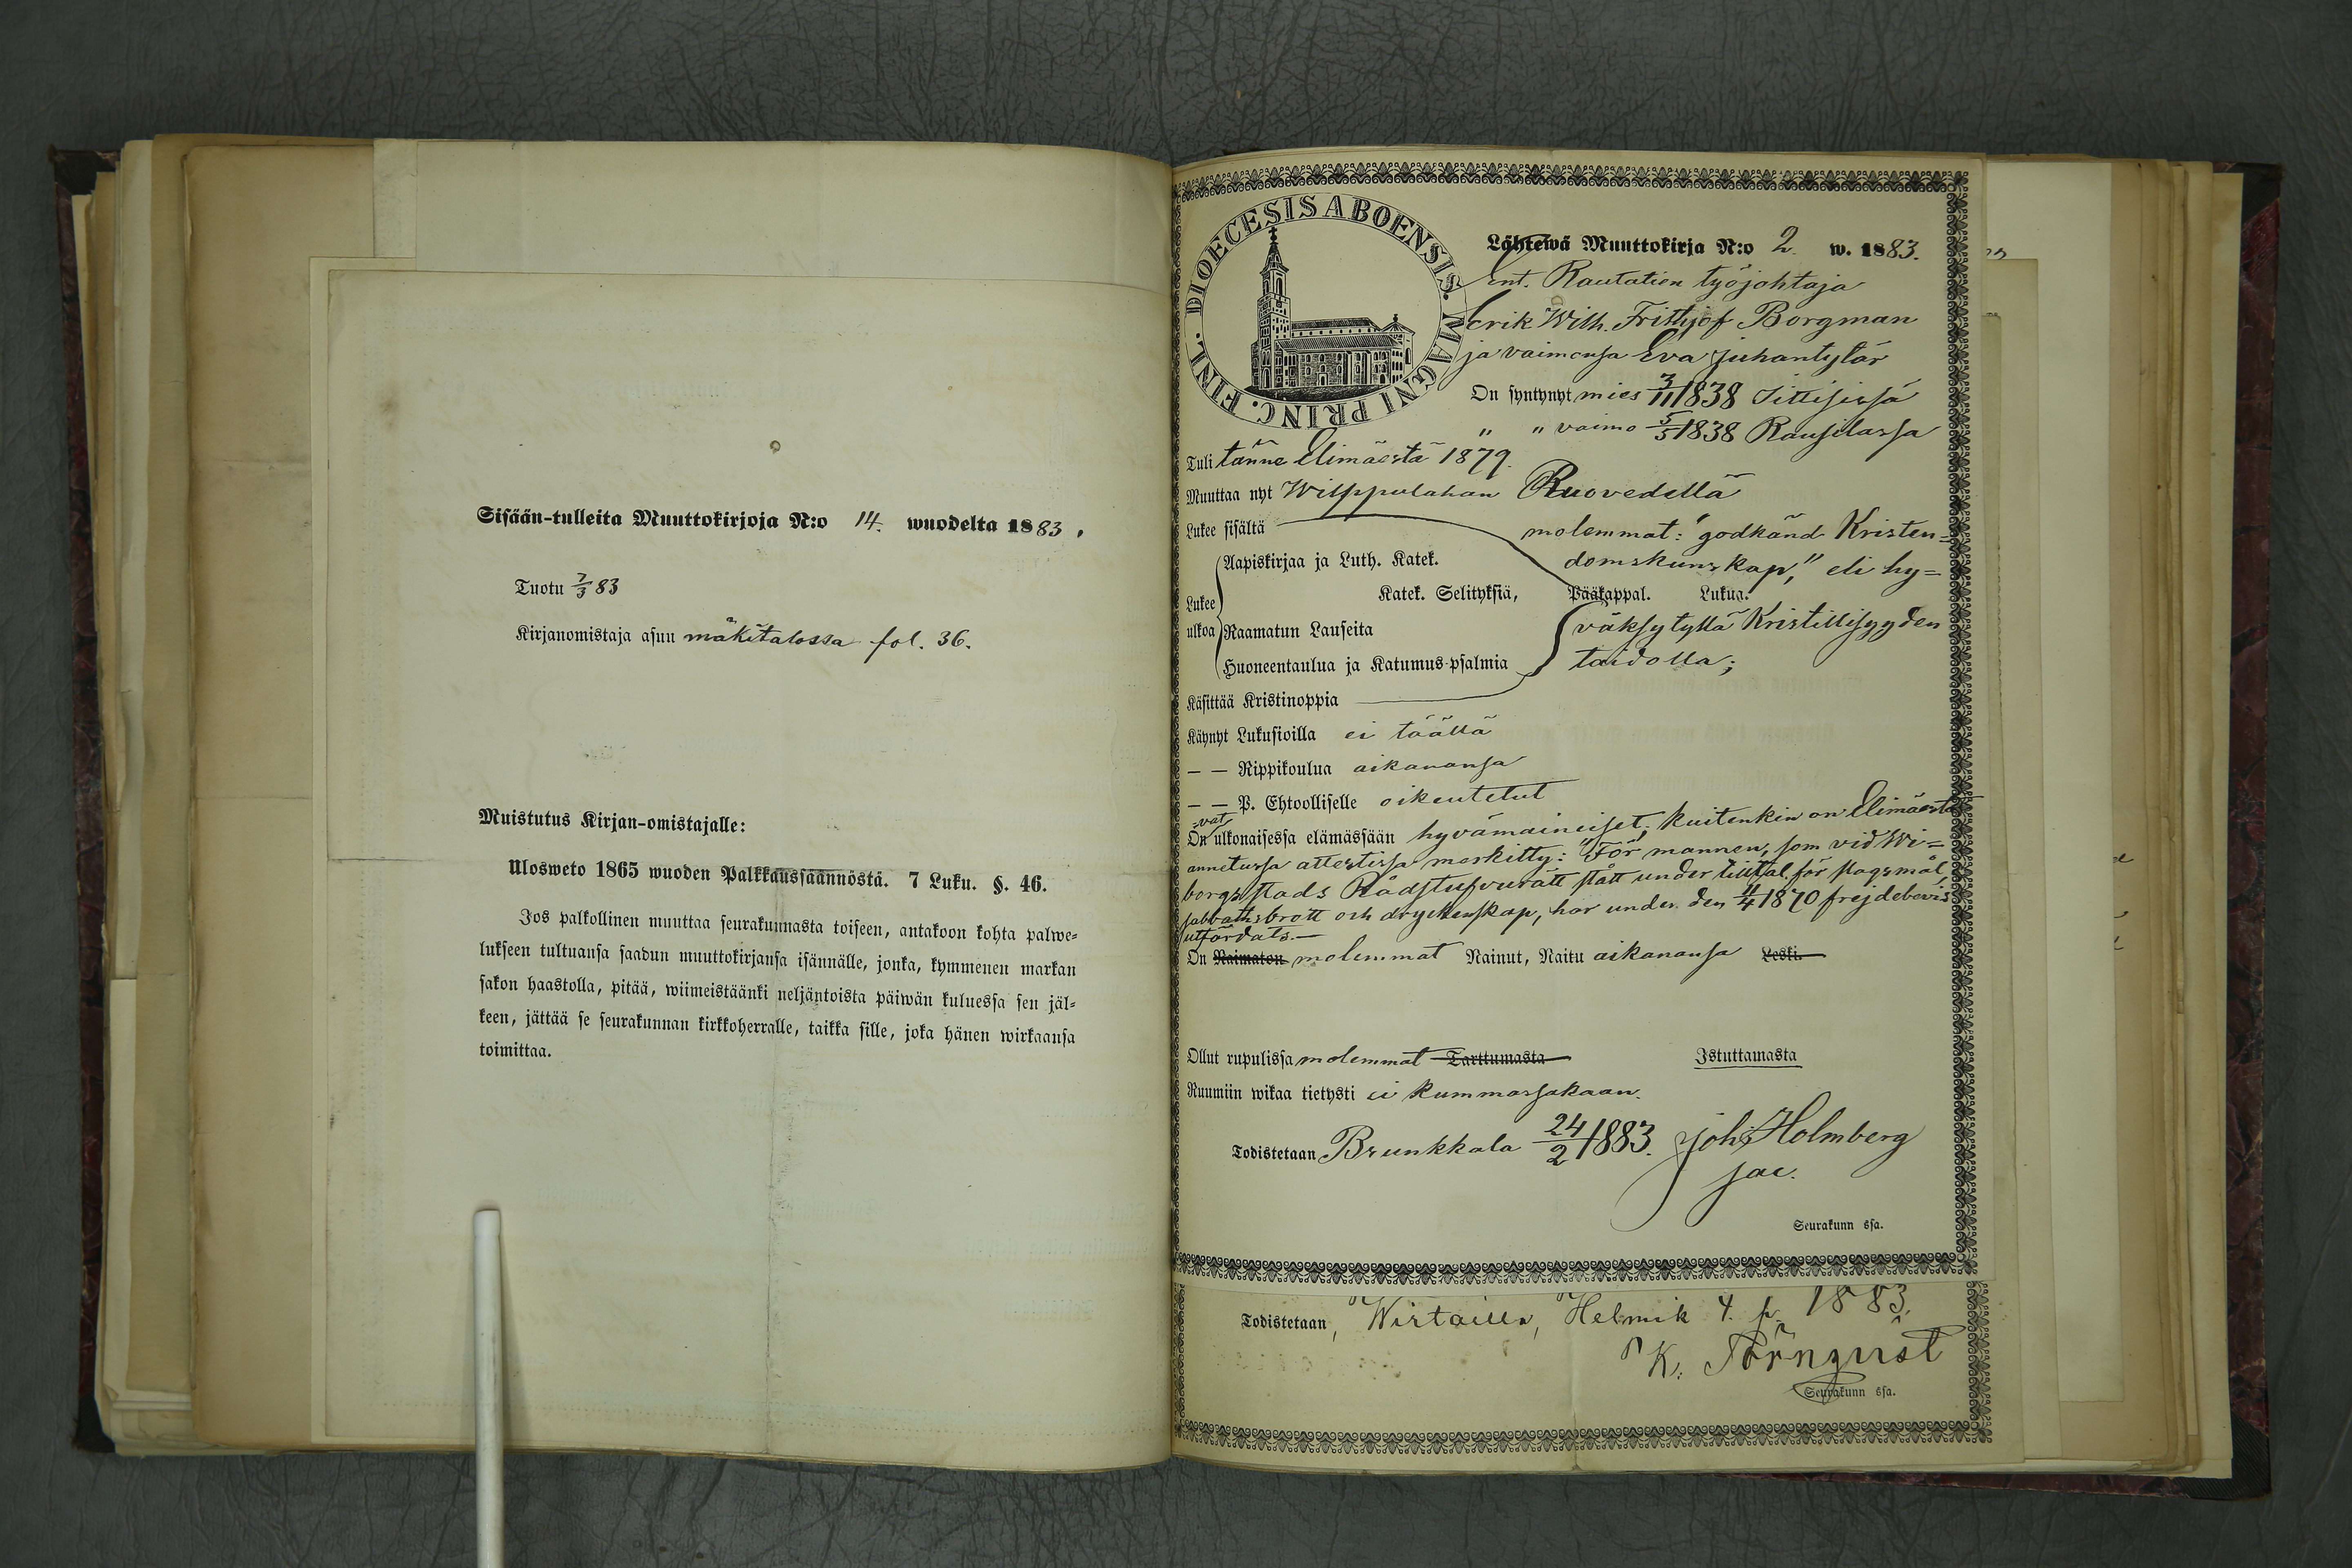 Sisään-tulleita Muuttokirjoja N:o 14. wuodelta 1883,
Tuotu 7/3 83
Kirjanomistaja asuu mäkitalossa fol. 36.
Muistutus Kirjan-omistajalle:
Ulosweto 1865 wuoden Palkkaussäännöstä. 7 Luku. §. 46.
Jos palkollinen muuttaa seurakunnasta toiseen, antakoon kohta palwe-
lukseen tultuansa saadun muuttokirjansa isännälle, jonka, kymmenen markan
sakon haastolla, pitää, wiimeistäänki neljäntoista päiwän kuluessa sen jäl-
keen, jättää se seurakunnan kirkkoherralle, taikka sille, joka hänen wirkaansa
toimittaa.
DIOECESIS ABOENSIS. MAGNI PRINC. FINL.
Lähtewä Muuttokirja N:o 2. w. 1883.
Ent. Rautatien työjohtaja
Erik Wilh. Frithjof Borgman
ja vaimonsa Eva Juhantytär
On syntynyt mies 3/11 1838 Iittisissä
" " vaimo 5/5 1838 Rautilassa
Tuli tänne Elimäestä 1879.
Muuttaa nyt Wilppulahan Ruovedellä
Lukee sisältä molemmat: "godkänd Kristen=
Aapiskirjaa ja Luth. Katek. domskunskap," eli hy=
Lukee Katek. Selityksiä, Pääkappal. Lukua.
ulkoa Raamatun Lauseita väksytyllä Kristillisyyden
Huoneentaulua ja Katumus-psalmia taidolla;
Käsittää Kristinoppia
Käynyt Lukusioilla ei täällä
— — Rippikoulua aikanansa
— — P. Ehtoolliselle oikeutetut
-vat
On ulkonaisessa elämässään hyvämaineiset; kuitenkin on Elimäestä
annetussa attestissa merkitty: "För mannen, som vid Wi=
borgs stads Rådstufvurätt stått under tilltal för slagsmål,
sabbathsbrott och dryckenskap, har under den 4/4 1870 frejdebevis
utfärdats.—
On Naimaton molemmat Nainut, Naitu aikanansa Leski.
Ollut rupulissa molemmat Tarttumasta Istuttamasta
Ruumiin wikaa tietysti ei kummassakaan.
Todistetaan Brunkkala 24/2 1883. Joh. Holmberg
sac.
Seurakunn ssa.
Todistetaan, Wirtoilla, Helmik 4. p. 1883.
K. Törnqvist
Seurakunn ssa.